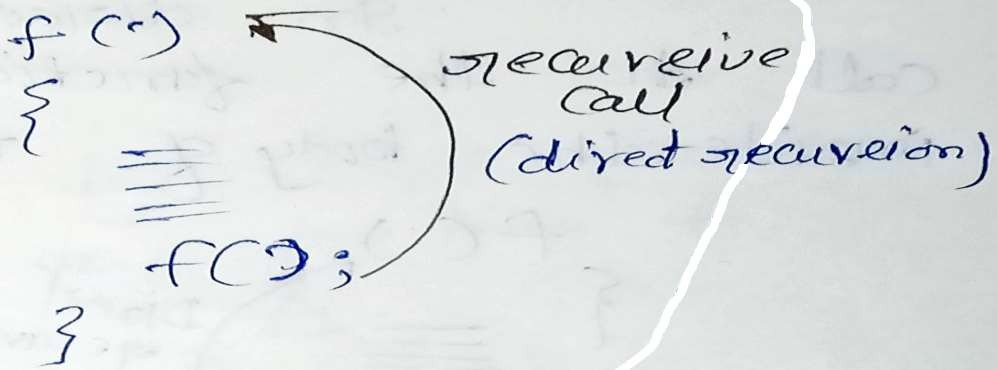 f()
{
recursive
call
(direct recursion)
f();
}